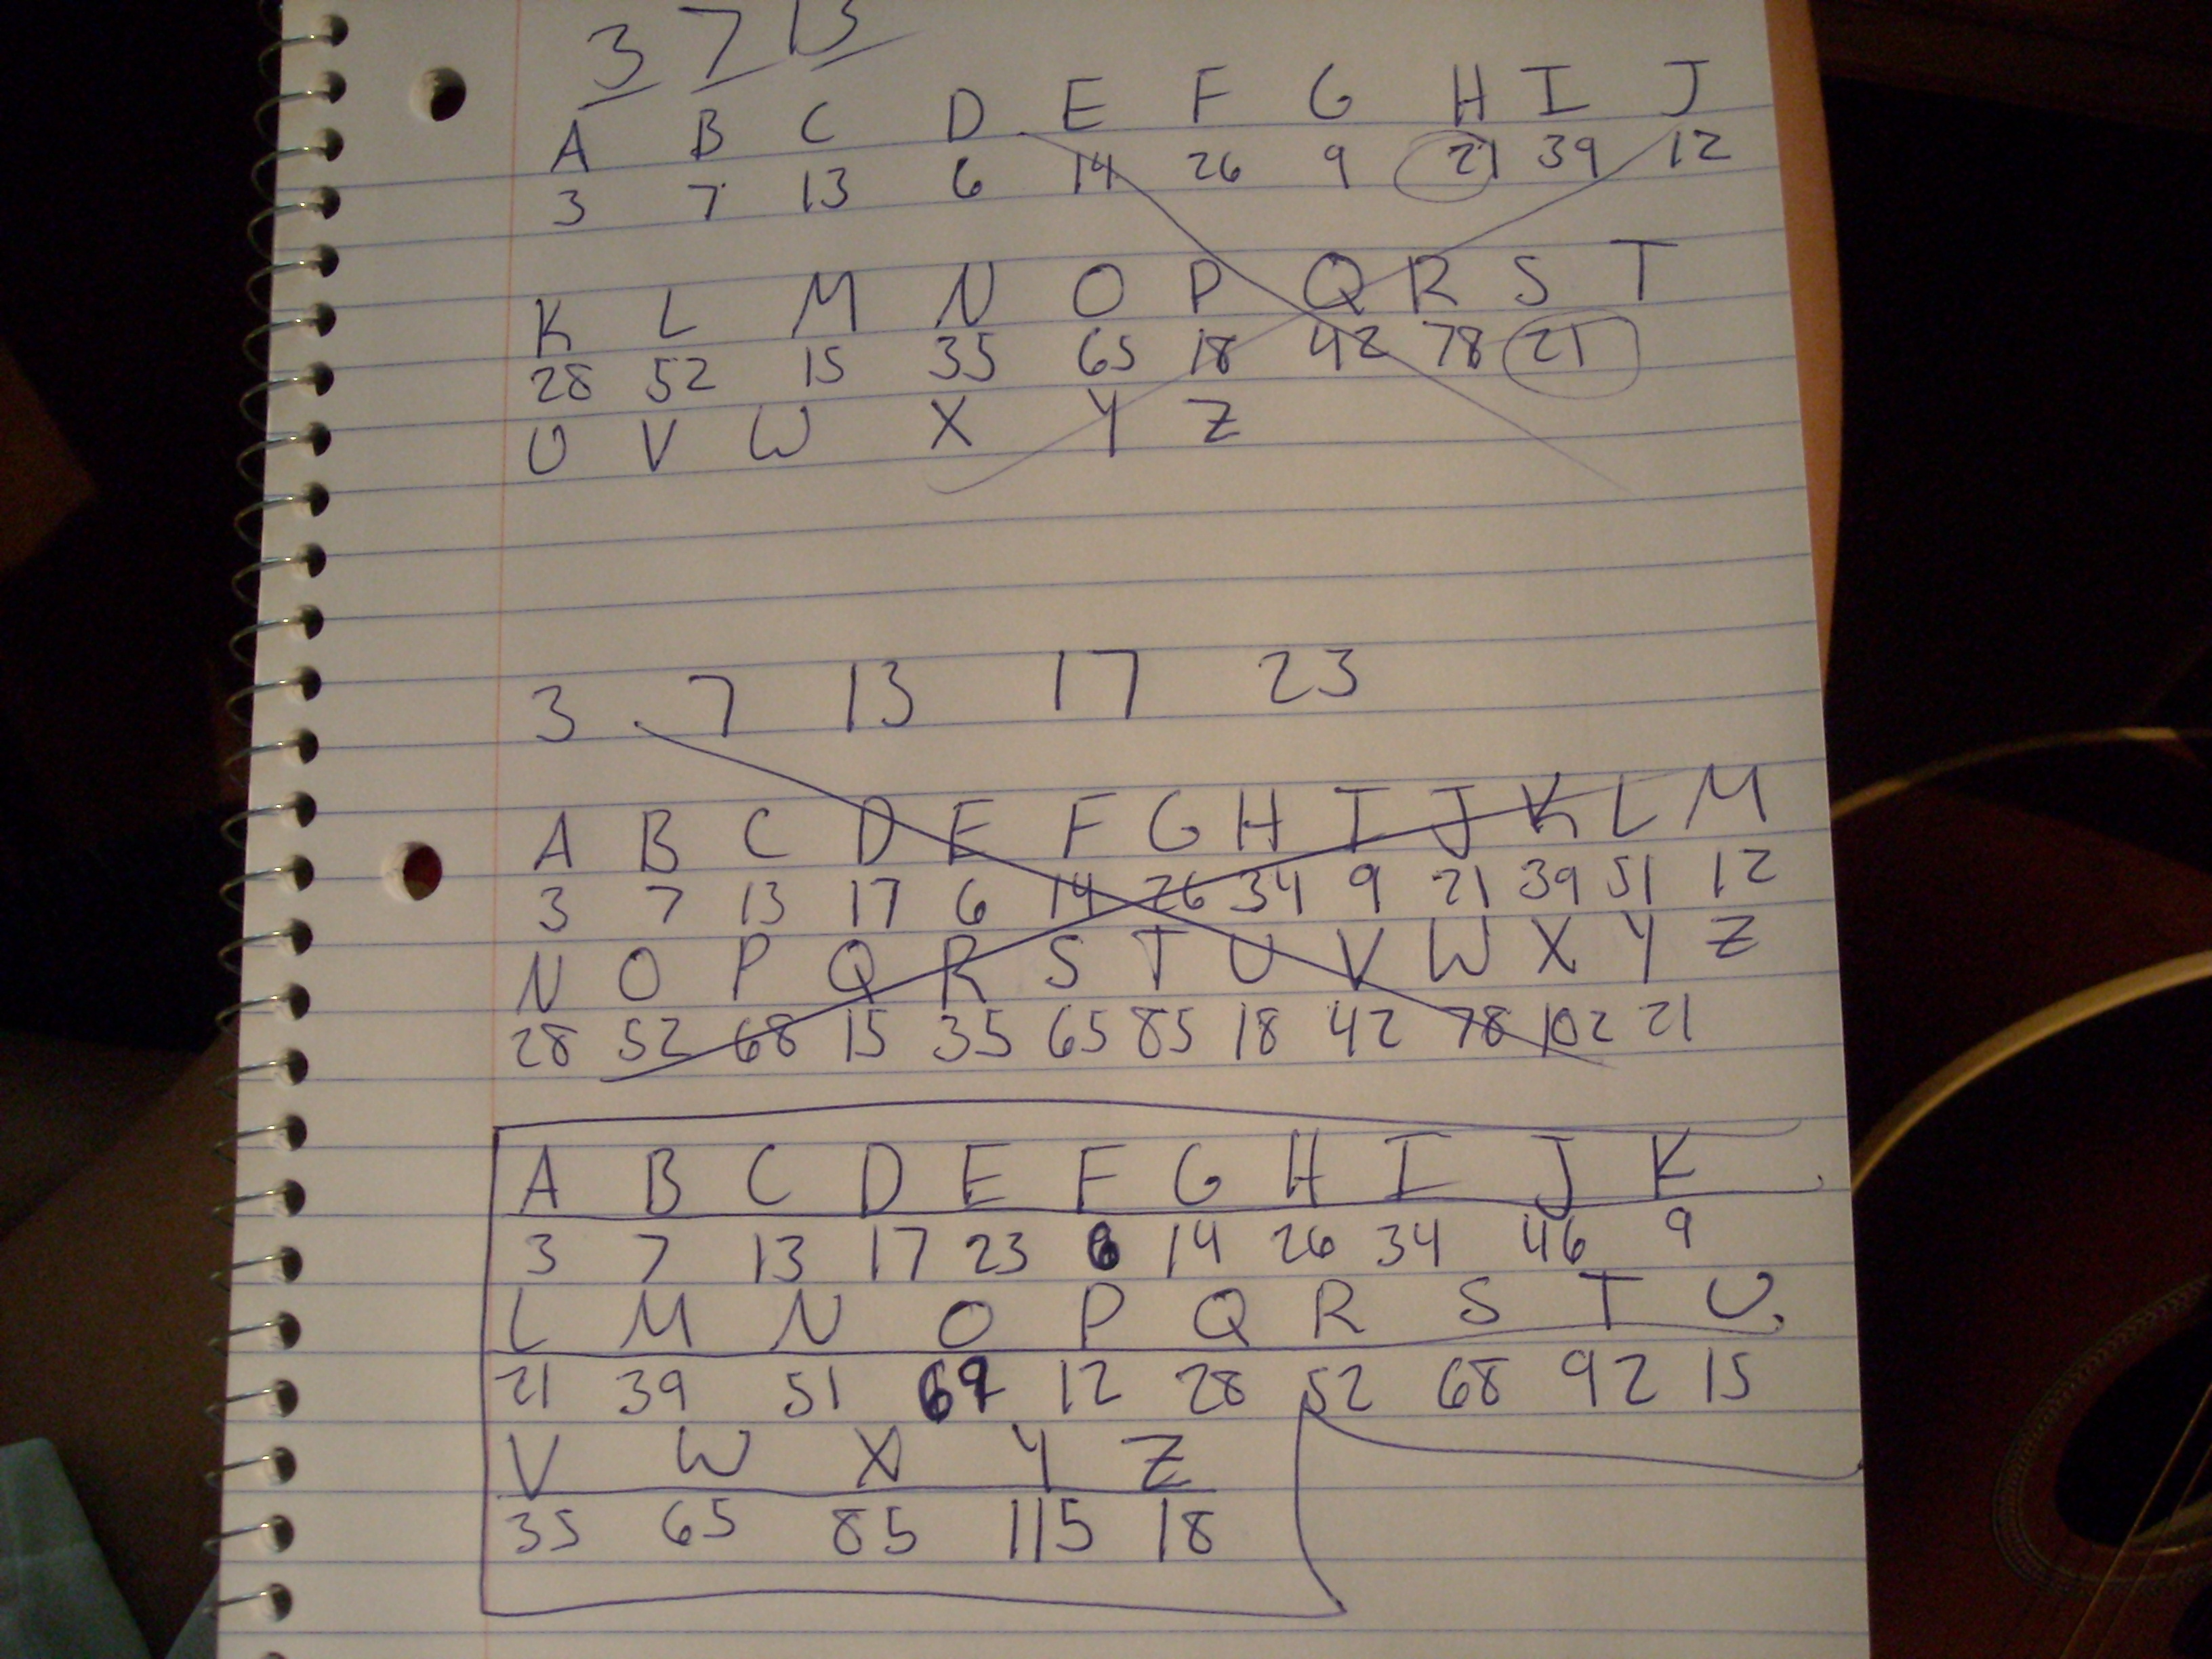 3 7 13
A B C D E F G H I J
3 7 13 6 14 26 9 21 39 12
K L M N O P Q R S T
28 52 15 35 65 18 42 78 21
U V W X Y Z
3 7 13 17 23
A B C D E F G H I J K L M
3 7 13 17 6 14 26 34 9 21 39 51 12
N O P Q R S T U V W X Y Z
28 52 68 15 35 65 85 18 42 78 102 21
A B C D E F G H I J K
3 7 13 17 23 6 14 26 34 46 9
L M N O P Q R S T U
21 39 51 69 12 28 52 68 92 15
V W X Y Z
35 65 85 115 18